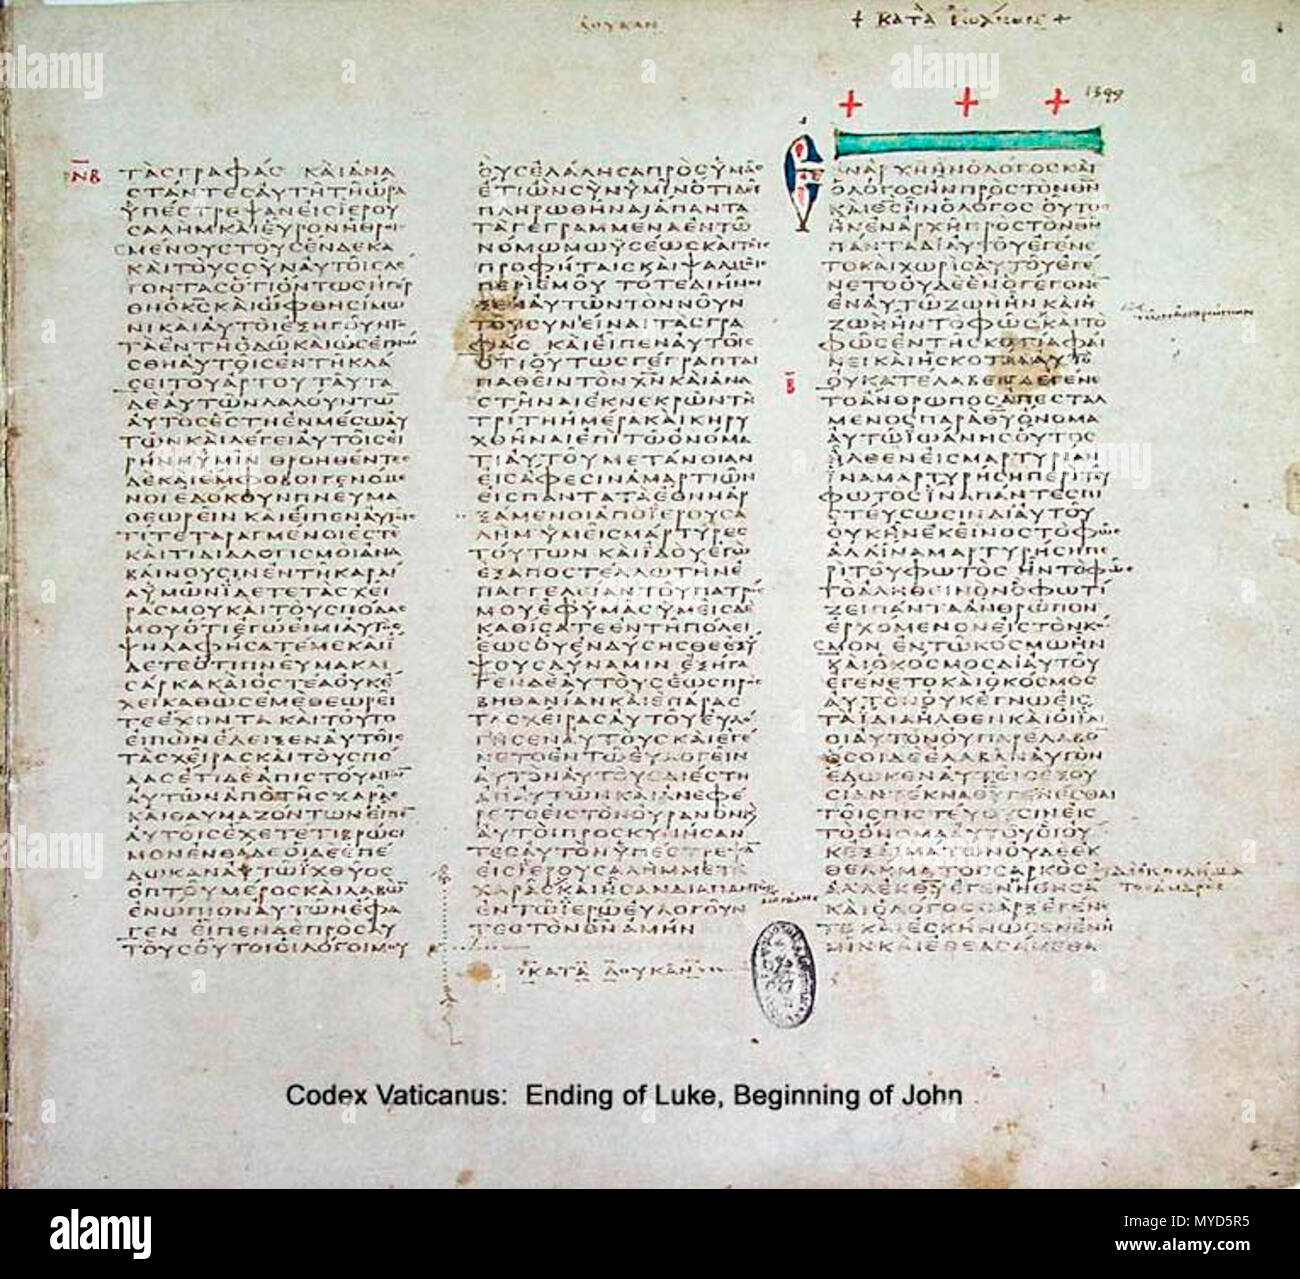 ΛΟΥΚΑΝ
+ ΚΑΤΑ ΙΩΑΝΝΗΝ +
1349
Ν̅Β
ΤΑϹΓΡΑΦΑϹ ΚΑΙΑΝΑ
ϹΤΑΝΤΕϹΑΥΤΗΤΗΩΡΑ
ΥΠΕϹΤΡΕΨΑΝΕΙϹΙΕΡΟΥ
ϹΑΛΗΜΚΑΙΕΥΡΟΝΗΘΡΟΙ
ϹΜΕΝΟΥϹΤΟΥϹΕΝΔΕΚΑ
ΚΑΙΤΟΥϹϹΥΝΑΥΤΟΙϹΛΕ
ΓΟΝΤΑϹΟΤΙΟΝΤΩϹΗΓΕΡ
ΘΗΟΚ̅Ϲ̅ΚΑΙΩΦΘΗϹΙΜΩ
ΝΙΚΑΙΑΥΤΟΙΕΞΗΓΟΥΝΤΟ
ΤΑΕΝΤΗΟΔΩΚΑΙΩϹΕΓΝΩ
ϹΘΗΑΥΤΟΙϹΕΝΤΗΚΛΑ
ϹΕΙΤΟΥΑΡΤΟΥΤΑΥΤΑ
ΔΕΑΥΤΩΝΛΑΛΟΥΝΤΩ
ΑΥΤΟϹΕϹΤΗΕΝΜΕϹΩΑΥ
ΤΩΝΚΑΙΛΕΓΕΙΑΥΤΟΙϹΕΙ
ΡΗΝΗΥΜΙΝ ΘΡΟΗΘΕΝΤΕϹ
ΔΕΚΑΙΕΜΦΟΒΟΙΓΕΝΟΜΕ
ΝΟΙΕΔΟΚΟΥΝΠΝΕΥΜΑ
ΘΕΩΡΕΙΝ ΚΑΙΕΙΠΕΝΑΥΤΟΙϹ
ΤΙΤΕΤΑΡΑΓΜΕΝΟΙΕϹΤΕ
ΚΑΙΤΙΔΙΑΛΟΓΙϹΜΟΙΑΝΑ
ΒΑΙΝΟΥϹΙΝΕΝΤΗΚΑΡΔΙ
ΑΥΜΩΝΙΔΕΤΕΤΑϹΧΕΙ
ΡΑϹΜΟΥΚΑΙΤΟΥϹΠΟΔΑϹ
ΜΟΥΟΤΙΕΓΩΕΙΜΙΑΥΤΟϹ
ΨΗΛΑΦΗϹΑΤΕΜΕΚΑΙΙ
ΔΕΤΕΟΤΙΠΝΕΥΜΑΚΑΙ
ϹΑΡΚΑΚΑΙΟϹΤΕΑΟΥΚΕ
ΧΕΙΚΑΘΩϹΕΜΕΘΕΩΡΕΙ
ΤΕΕΧΟΝΤΑ ΚΑΙΤΟΥΤΟ
ΕΙΠΩΝΕΔΕΙΞΕΝΑΥΤΟΙϹ
ΤΑϹΧΕΙΡΑϹΚΑΙΤΟΥϹΠΟ
ΔΑϹΕΤΙΔΕΑΠΙϹΤΟΥΝΤΩΝ
ΑΥΤΩΝΑΠΟΤΗϹΧΑΡΑϹ
ΚΑΙΘΑΥΜΑΖΟΝΤΩΝΕΙΠΕ
ΑΥΤΟΙϹΕΧΕΤΕΤΙΒΡΩϹΙ
ΜΟΝΕΝΘΑΔΕΟΙΔΕΕΠΕ
ΔΩΚΑΝΑΥΤΩΙΧΘΥΟϹ
ΟΠΤΟΥΜΕΡΟϹΚΑΙΛΑΒΩ
ΕΝΩΠΙΟΝΑΥΤΩΝΕΦΑ
ΓΕΝ ΕΙΠΕΝΔΕΠΡΟϹΑΥ
ΤΟΥϹΟΥΤΟΙΟΙΛΟΓΟΙΜΟΥ
ΟΥϹΕΛΑΛΗϹΑΠΡΟϹΥΜΑϹ
ΕΤΙΩΝϹΥΝΥΜΙΝΟΤΙΔΕΙ
ΠΛΗΡΩΘΗΝΑΙΑΠΑΝΤΑ
ΤΑΓΕΓΡΑΜΜΕΝΑΕΝΤΩ
ΝΟΜΩΜΩΥϹΕΩϹΚΑΙΤΟΙϹ
ΠΡΟΦΗΤΑΙϹΚΑΙΨΑΛΜΟΙϹ
ΠΕΡΙΕΜΟΥ ΤΟΤΕΔΙΗΝΟΙ
ΞΕΝΑΥΤΩΝΤΟΝΝΟΥΝ
ΤΟΥϹΥΝΕΙΝΑΙΤΑϹΓΡΑ
ΦΑϹ ΚΑΙΕΙΠΕΝΑΥΤΟΙϹ
ΟΤΙΟΥΤΩϹΓΕΓΡΑΠΤΑΙ
ΠΑΘΕΙΝΤΟΝΧ̅Ν̅ΚΑΙΑΝΑ
ϹΤΗΝΑΙΕΚΝΕΚΡΩΝΤΗ
ΤΡΙΤΗΗΜΕΡΑΚΑΙΚΗΡΥ
ΧΘΗΝΑΙΕΠΙΤΩΟΝΟΜΑ
ΤΙΑΥΤΟΥΜΕΤΑΝΟΙΑΝ
ΕΙϹΑΦΕϹΙΝΑΜΑΡΤΙΩΝ
ΕΙϹΠΑΝΤΑΤΑΕΘΝΗΑΡ
ΞΑΜΕΝΟΙΑΠΟΙΕΡΟΥϹΑ
ΛΗΜ ΥΜΕΙϹΜΑΡΤΥΡΕϹ
ΤΟΥΤΩΝ ΚΑΙΙΔΟΥΕΓΩ
ΕΞΑΠΟϹΤΕΛΛΩΤΗΝΕ
ΠΑΓΓΕΛΕΙΑΝΤΟΥΠΑΤΡΟϹ
ΜΟΥΕΦΥΜΑϹΥΜΕΙϹΔΕ
ΚΑΘΙϹΑΤΕΕΝΤΗΠΟΛΕΙ
ΕΩϹΟΥΕΝΔΥϹΗϹΘΕΕΞΥ
ΨΟΥϹΔΥΝΑΜΙΝ ΕΞΗΓΑ
ΓΕΝΔΕΑΥΤΟΥϹΕΩϹΠΡΟϹ
ΒΗΘΑΝΙΑΝΚΑΙΕΠΑΡΑϹ
ΤΑϹΧΕΙΡΑϹΑΥΤΟΥΕΥΛΟ
ΓΗϹΕΝΑΥΤΟΥϹΚΑΙΕΓΕ
ΝΕΤΟΕΝΤΩΕΥΛΟΓΕΙΝ
ΑΥΤΟΝΑΥΤΟΥϹΔΙΕϹΤΗ
ΑΠΑΥΤΩΝΚΑΙΑΝΕΦΕ
ΡΕΤΟΕΙϹΤΟΝΟΥΡΑΝΟΝΚΑΙ
ΑΥΤΟΙΠΡΟϹΚΥΝΗϹΑΝ
ΤΕϹΑΥΤΟΝΥΠΕϹΤΡΕΨΑ
ΕΙϹΙΕΡΟΥϹΑΛΗΜΜΕΤΑ
ΧΑΡΑϹΚΑΙΗϹΑΝΔΙΑΠΑΝΤΟϹ
ΕΝΤΩΙΕΡΩΕΥΛΟΓΟΥΝ
ΤΕϹΤΟΝΘ̅Ν̅ΑΜΗΝ
ΚΑΤΑ ΛΟΥΚΑΝ
ΕΝΑΡΧΗΗΝΟΛΟΓΟϹΚΑΙ
ΟΛΟΓΟϹΗΝΠΡΟϹΤΟΝΘ̅Ν̅
ΚΑΙΘ̅Ϲ̅ΗΝΟΛΟΓΟϹ ΟΥΤΟϹ
ΗΝΕΝΑΡΧΗΠΡΟϹΤΟΝΘ̅Ν̅
ΠΑΝΤΑΔΙΑΥΤΟΥΕΓΕΝΕ
ΤΟΚΑΙΧΩΡΙϹΑΥΤΟΥΕΓΕ
ΝΕΤΟΟΥΔΕΕΝΟΓΕΓΟΝΕ
ΕΝΑΥΤΩΖΩΗΗΝ ΚΑΙΗ
ΖΩΗΗΝΤΟΦΩϹΚΑΙΤΟ
ΦΩϹΕΝΤΗϹΚΟΤΙΑΦΑΙ
ΝΕΙΚΑΙΗϹΚΟΤΙΑΑΥΤΟ
Β̅
ΟΥΚΑΤΕΛΑΒΕΝ ΕΓΕΝΕ
ΤΟΑΝΘΡΩΠΟϹΑΠΕϹΤΑΛ
ΜΕΝΟϹΠΑΡΑΘ̅Υ̅ΟΝΟΜΑ
ΑΥΤΩΙΩΑΝΗϹΟΥΤΟϹ
ΗΛΘΕΝΕΙϹΜΑΡΤΥΡΙΑΝ
ΙΝΑΜΑΡΤΥΡΗϹΗΠΕΡΙΤΟΥ
ΦΩΤΟϹΙΝΑΠΑΝΤΕϹΠΙ
ϹΤΕΥϹΩϹΙΝΔΙΑΥΤΟΥ
ΟΥΚΗΝΕΚΕΙΝΟϹΤΟΦΩϹ
ΑΛΛΙΝΑΜΑΡΤΥΡΗϹΗΠΕ
ΡΙΤΟΥΦΩΤΟϹ ΗΝΤΟΦΩϹ
ΤΟΑΛΗΘΕΙΝΟΝΟΦΩΤΙ
ΖΕΙΠΑΝΤΑΑΝΘΡΩΠΟΝ
ΕΡΧΟΜΕΝΟΝΕΙϹΤΟΝΚΟ
ϹΜΟΝ ΕΝΤΩΚΟϹΜΩΗΝ
ΚΑΙΟΚΟϹΜΟϹΔΙΑΥΤΟΥ
ΕΓΕΝΕΤΟΚΑΙΟΚΟϹΜΟϹ
ΑΥΤΟΝΟΥΚΕΓΝΩΕΙϹ
ΤΑΙΔΙΑΗΛΘΕΝΚΑΙΟΙΙΔΙ
ΟΙΑΥΤΟΝΟΥΠΑΡΕΛΑΒΟ
ΟϹΟΙΔΕΕΛΑΒΑΝΑΥΤΟΝ
ΕΔΩΚΕΝΑΥΤΟΙϹΕΞΟΥ
ϹΙΑΝΤΕΚΝΑΘ̅Υ̅ΓΕΝΕϹΘΑΙ
ΤΟΙϹΠΙϹΤΕΥΟΥϹΙΝΕΙϹ
ΤΟΟΝΟΜΑΑΥΤΟΥΟΙΟΥ
ΚΕΞΑΙΜΑΤΩΝΟΥΔΕΕΚ
ΘΕΛΗΜΑΤΟϹϹΑΡΚΟϹ
ΑΛΛΕΚΘ̅Υ̅ΕΓΕΝΗΘΗϹΑ
ΚΑΙΟΛΟΓΟϹϹΑΡΞΕΓΕΝΕ
ΤΟΚΑΙΕϹΚΗΝΩϹΕΝΕΝΗ
ΜΙΝΚΑΙΕΘΕΑϹΑΜΕΘΑ
ΤΩΝΑΝΘΡΩΠΩΝ
Codex Vaticanus: Ending of Luke, Beginning of John
alamy
Image ID: MYD5R5
www.alamy.com